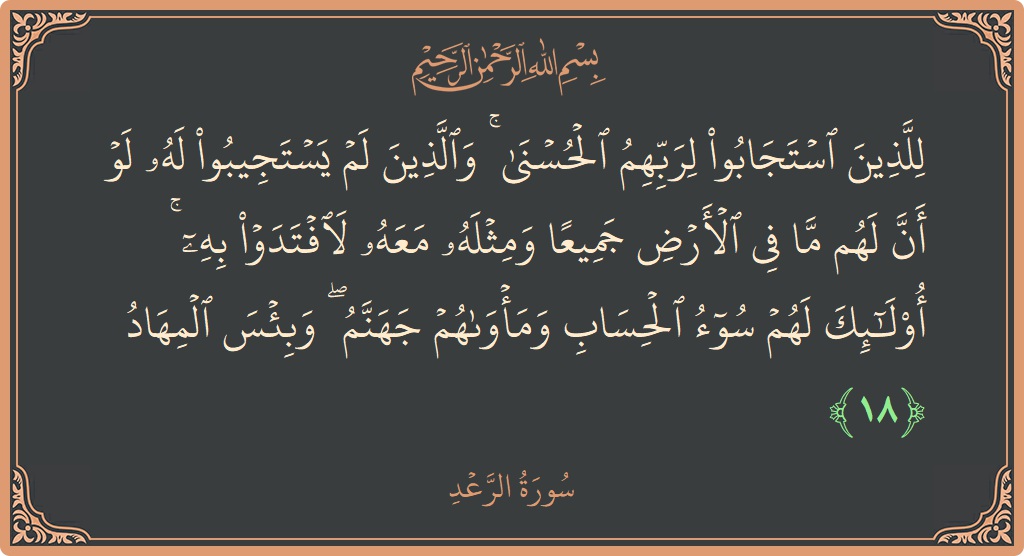 بِسْمِ ٱللَّهِ ٱلرَّحْمَٰنِ ٱلرَّحِيمِ
لِلَّذِينَ ٱسْتَجَابُوا۟ لِرَبِّهِمُ ٱلْحُسْنَىٰ ۚ وَٱلَّذِينَ لَمْ يَسْتَجِيبُوا۟ لَهُۥ لَوْ
أَنَّ لَهُم مَّا فِى ٱلْأَرْضِ جَمِيعًا وَمِثْلَهُۥ مَعَهُۥ لَٱفْتَدَوْا۟ بِهِۦٓ ۚ
أُو۟لَٰٓئِكَ لَهُمْ سُوٓءُ ٱلْحِسَابِ وَمَأْوَىٰهُمْ جَهَنَّمُ ۖ وَبِئْسَ ٱلْمِهَادُ
﴿١٨﴾
سُورَةُ الرَّعْدِ